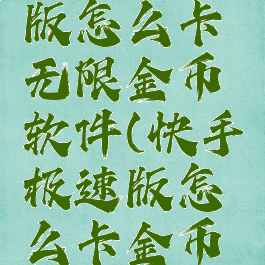 版怎么卡
无限金币
软件(快手
极速版怎
么卡金币